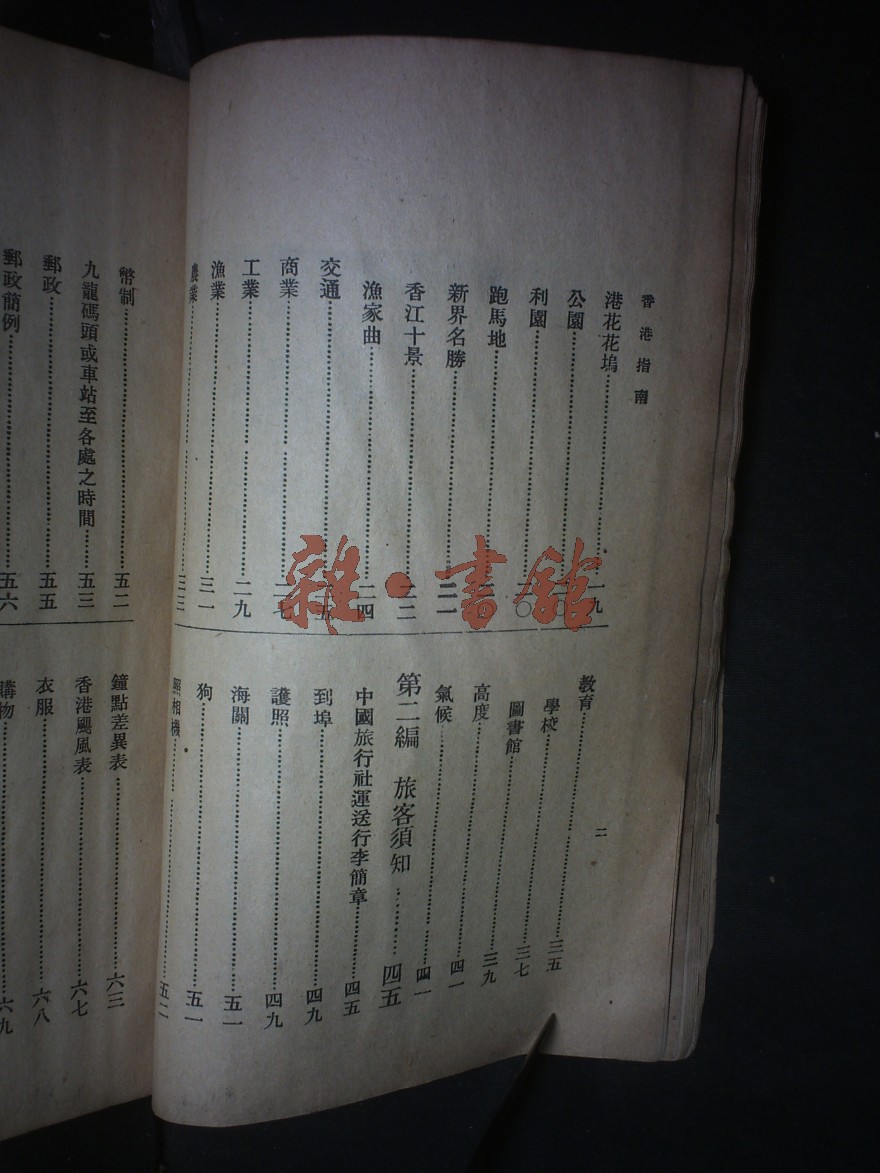 香港指南
港花花塢……一九
公園
利園
跑馬地
新界名勝……二一
香江十景……二三
漁家曲……二四
交通……二五
商業……二七
工業……二九
漁業……三一
農業……三三
教育……三五
學校……三五
圖書館……三七
高度……三九
氣候……四一
第二編 旅客須知……四五
中國旅行社運送行李簡章……四五
到埠……四九
護照……四九
海關……五一
狗……五一
照相機……五二
二
幣制……五二
九龍碼頭或車站至各處之時間……五三
郵政……五五
郵政簡例……五六
鐘點差異表……六三
香港颶風表……六七
衣服……六八
購物……六九
雜·書館